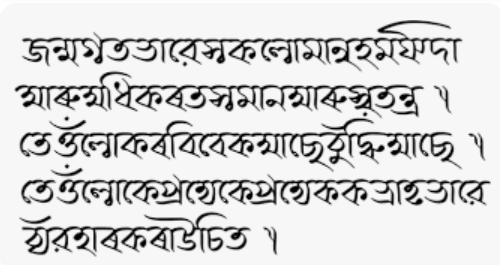 জন্মগতভাৱেসকলোমানুহমৰ্য্যদা
আৰুঅধিকৰতসমানআৰুস্বতন্ত্ৰ ৷
তেওঁলোকৰবিবেকআছেবুদ্ধিআছে ৷
তেওঁলোকেপ্ৰত্যেকেপ্ৰত্যেককভ্ৰাতৃভাৱে
ব্যৱহাৰকৰাউচিত ৷